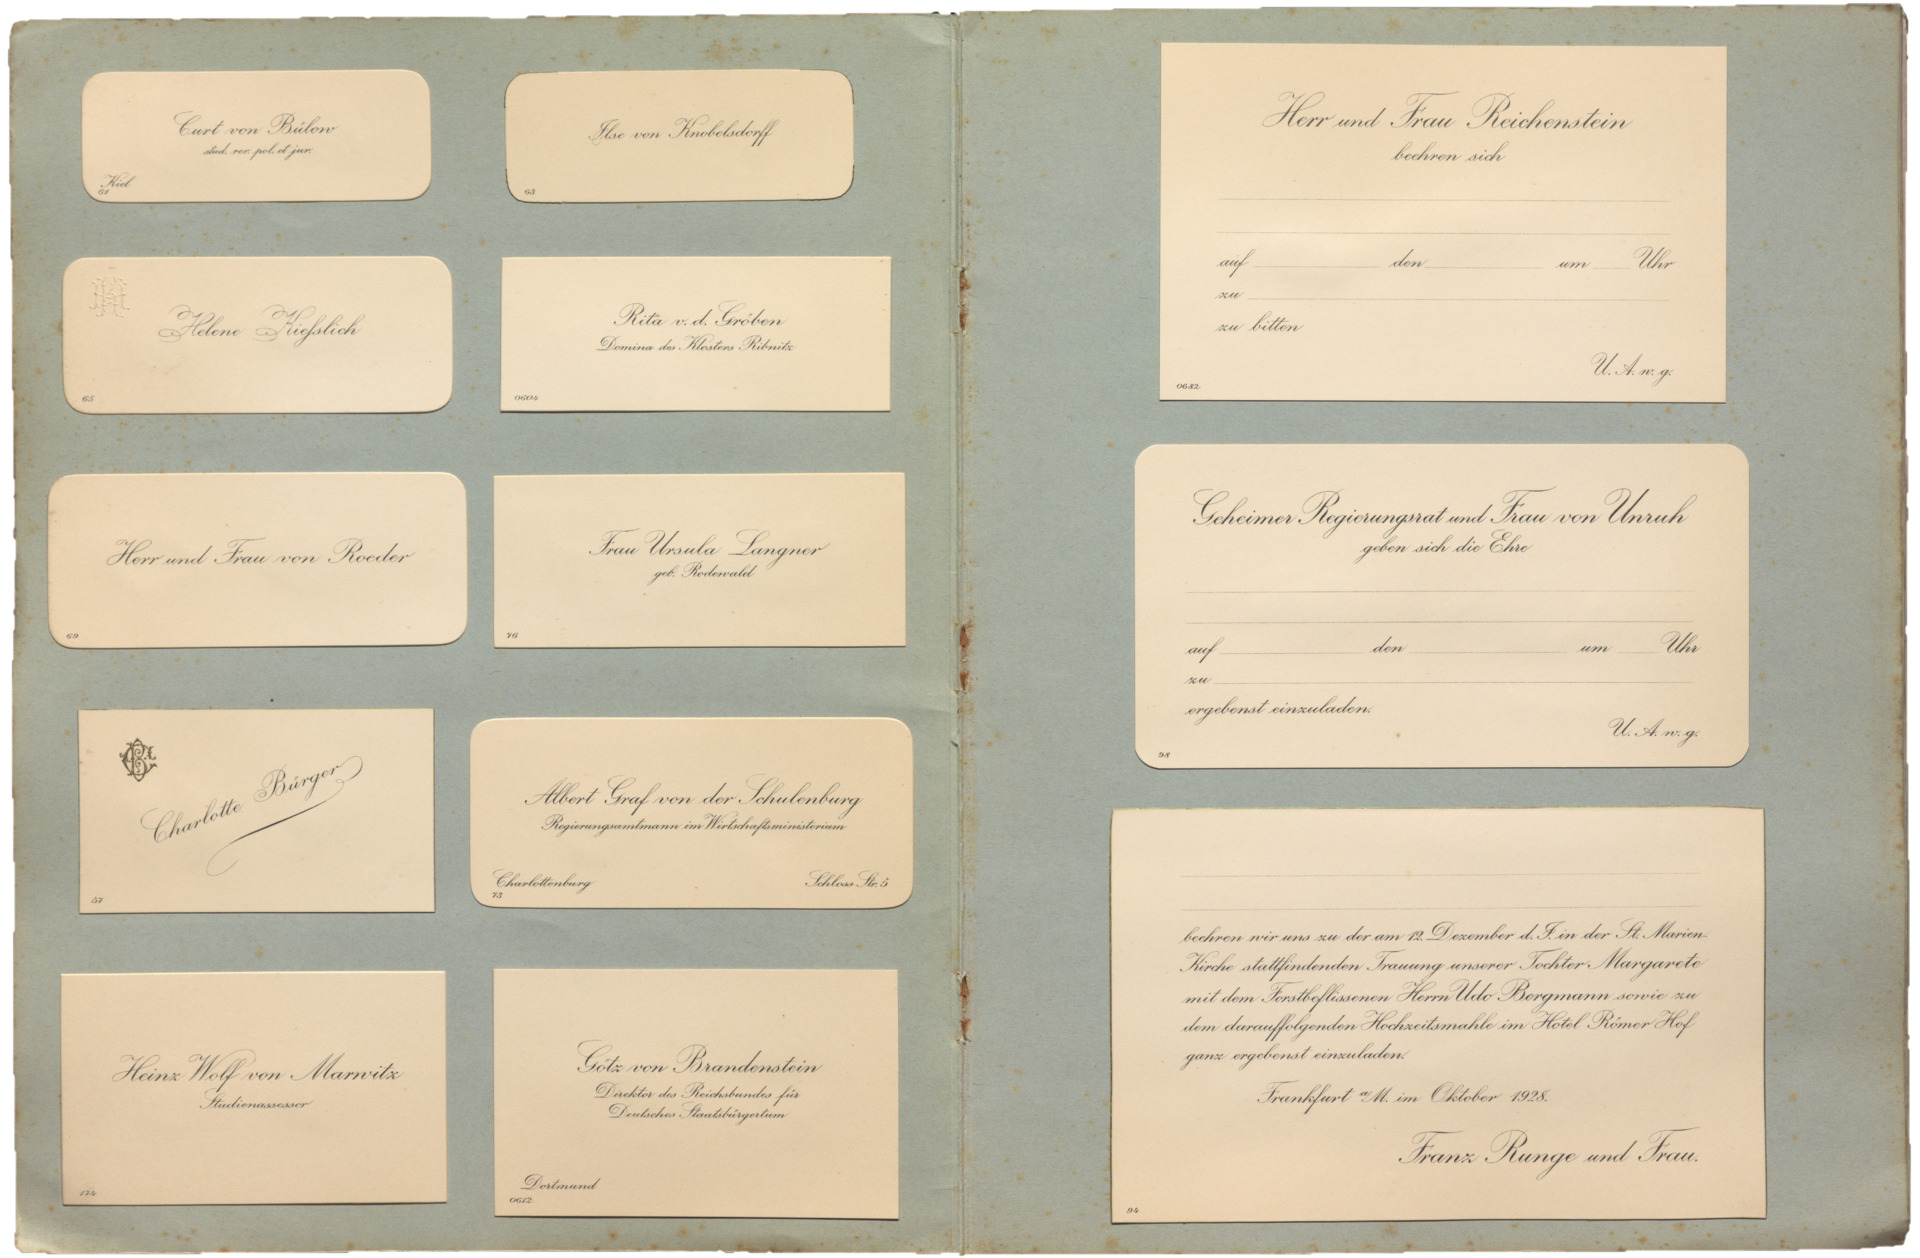 Curt von Bülow
stud. rer. pol. et jur.
Kiel
61
Ilse von Knobelsdorff
63
HK
Helene Kießlich
65
Rita v. d. Gröben
Domina des Klosters Ribnitz
0604
Herr und Frau von Roeder
69
Frau Ursula Langner
geb. Rodewald
76
CB
Charlotte Bürger
57
Albert Graf von der Schulenburg
Regierungsamtmann im Wirtschaftsministerium
Charlottenburg Schloss-Str. 5
73
Heinz Wolf von Marwitz
Studienassessor
174
Götz von Brandenstein
Direktor des Reichsbundes für
Deutsches Staatsbürgertum
Dortmund
0612
Herr und Frau Reichenstein
beehren sich
auf den um Uhr
zu
zu bitten
U. A. w. g.
0632
Geheimer Regierungsrat und Frau von Unruh
geben sich die Ehre
auf den um Uhr
zu
ergebenst einzuladen.
U. A. w. g.
98
beehren wir uns zu der am 12. Dezember d. J. in der St. Marien-
Kirche stattfindenden Trauung unserer Tochter Margarete
mit dem Forstbeflissenen Herrn Udo Bergmann sowie zu
dem darauffolgenden Hochzeitsmahle im Hotel Römer Hof
ganz ergebenst einzuladen.
Frankfurt a/M. im Oktober 1928.
Franz Runge und Frau.
94